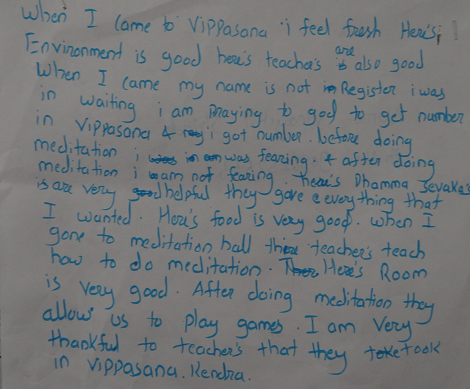 When I came to Vippasana i feel fresh Here's
Environment is good here's teacher's are also good
When I came my name is not Register i was
in waiting i am praying to god to get number
in Vippasana & i got number. before doing
meditation i was fearing. & after doing
meditation i am not fearing. here's Dhamma Sevaka's
is are very helpful they gave everything that
I wanted. Here's food is very good. When I
gone to meditation hall there teacher's teach
how to do meditation. Here's Room
is very good. After doing meditation they
allow us to play games. I am Very
thankful to teacher's that they took
in Vippasana. Kendra.